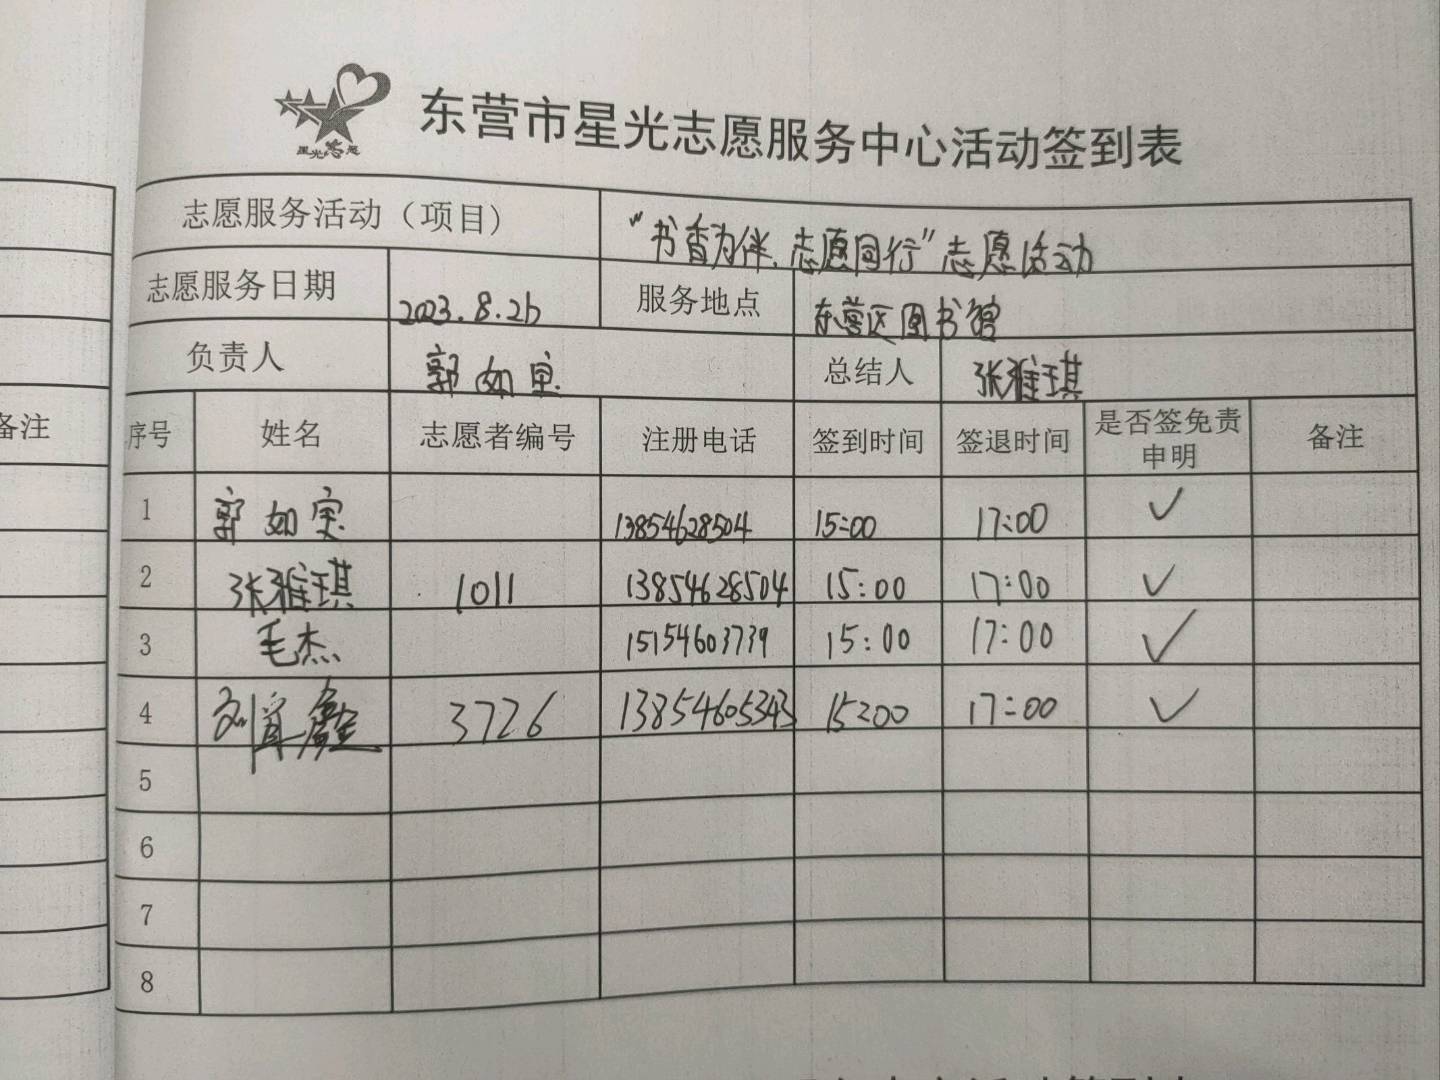 星光志愿
东营市星光志愿服务中心活动签到表
志愿服务活动（项目） “书香为伴、志愿同行”志愿活动
志愿服务日期 2023.8.26 服务地点 东营区图书馆
负责人 郭如宝 总结人 张雅琪
备注
序号 姓名 志愿者编号 注册电话 签到时间 签退时间 是否签免责申明 备注
1 郭如宝 13854628504 15:00 17:00 ✓
2 张雅琪 1011 13854628504 15:00 17:00 ✓
3 毛杰 15154603739 15:00 17:00 ✓
4 刘 鑫 3726 13854605343 15:00 17:00 ✓
5
6
7
8